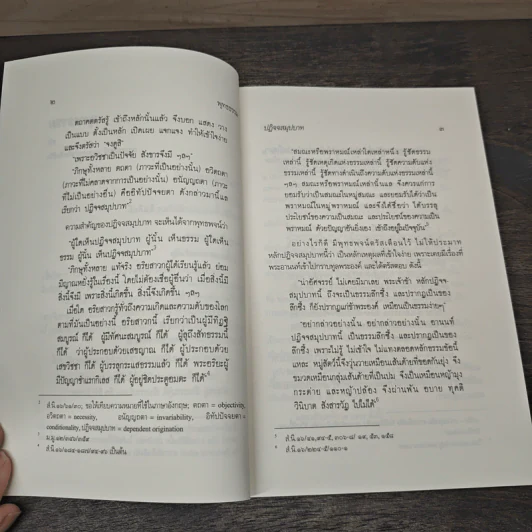 ๒
พุทธธรรม
ตถาคตตรัสรู้ เข้าถึงหลักนั้นแล้ว จึงบอก แสดง วาง
เป็นแบบ ตั้งเป็นหลัก เปิดเผย แจกแจง ทำให้เข้าใจง่าย
และจึงตรัสว่า "จงดูสิ"
"เพราะอวิชชาเป็นปัจจัย สังขารจึงมี ฯลฯ"
"ภิกษุทั้งหลาย ตถตา (ภาวะที่เป็นอย่างนั้น) อวิตถตา
(ภาวะที่ไม่คลาดจากการเป็นอย่างนั้น) อนัญญถตา (ภาวะ
ที่ไม่เป็นอย่างอื่น) คืออิทัปปัจจยตา ดังกล่าวมานี้แล
เรียกว่า ปฏิจจสมุปบาท"
ความสำคัญของปฏิจจสมุปบาท จะเห็นได้จากพุทธพจน์ว่า
"ผู้ใดเห็นปฏิจจสมุปบาท ผู้นั้น เห็นธรรม ผู้ใดเห็น
ธรรม ผู้นั้น เห็นปฏิจจสมุปบาท"
"ภิกษุทั้งหลาย แท้จริง อริยสาวกผู้ได้เรียนรู้แล้ว ย่อม
มีญาณหยั่งรู้ในเรื่องนี้ โดยไม่ต้องเชื่อผู้อื่นว่า เมื่อสิ่งนี้มี
สิ่งนี้จึงมี เพราะสิ่งนี้เกิดขึ้น สิ่งนี้จึงเกิดขึ้น ฯลฯ"
เมื่อใด อริยสาวกรู้ทั่วถึงความเกิดและความดับของโลก
ตามที่มันเป็นอย่างนี้ อริยสาวกนี้ เรียกว่าเป็นผู้มีทิฏฐิ
สมบูรณ์ ก็ได้ ผู้มีทัศนะสมบูรณ์ ก็ได้ ผู้ลุถึงสัทธรรมนี้
ก็ได้ ว่าผู้ประกอบด้วยเสขญาณ ก็ได้ ผู้ประกอบด้วย
เสขวิชชา ก็ได้ ผู้บรรลุกระแสธรรมแล้ว ก็ได้ พระอริยะผู้
มีปัญญาชำแรกกิเลส ก็ได้ ผู้อยู่ชิดประตูอมตะ ก็ได้"
สํ.นิ.๑๖/๖๑/๓๐; ขอให้เทียบความหมายที่ใช้ในภาษาอังกฤษ; ตถตา = objectivity,
อวิตถตา = necessity, อนัญญถตา = invariability, อิทัปปัจจยตา =
conditionality, ปฏิจจสมุปบาท = dependent origination
ม.มู.๑๒/๓๔๖/๓๕๙
เป็นต้น
ปฏิจจสมุปบาท
๓
"สมณะหรือพราหมณ์เหล่าใดเหล่าหนึ่ง รู้ชัดธรรม
เหล่านี้ รู้ชัดเหตุเกิดแห่งธรรมเหล่านี้ รู้ชัดความดับแห่ง
ธรรมเหล่านี้ รู้ชัดทางดำเนินถึงความดับแห่งธรรมเหล่านี้
ฯลฯ สมณะหรือพราหมณ์เหล่านั้นแล จึงควรแก่การ
ยอมรับว่าเป็นสมณะในหมู่สมณะ และยอมรับได้ว่าเป็น
พราหมณ์ในหมู่พราหมณ์ และจึงได้ชื่อว่า ได้บรรลุ
ประโยชน์ของความเป็นสมณะ และประโยชน์ของความเป็น
พราหมณ์ ด้วยปัญญาอันยิ่งเอง เข้าถึงอยู่ในปัจจุบัน"
อย่างไรก็ดี มีพุทธพจน์ตรัสเตือนไว้ ไม่ให้ประมาท
หลักปฏิจจสมุปบาทนี้ว่า เป็นหลักเหตุผลที่เข้าใจง่าย เพราะเคยมีเรื่องที่
พระอานนท์เข้าไปกราบทูลพระองค์ และได้ตรัสตอบ ดังนี้
"น่าอัศจรรย์ ไม่เคยมีมาเลย พระเจ้าข้า หลักปฏิจจ
สมุปบาทนี้ ถึงจะเป็นธรรมลึกซึ้ง และปรากฏเป็นของ
ลึกซึ้ง ก็ยังปรากฏแก่ข้าพระองค์ เหมือนเป็นธรรมง่ายๆ"
"อย่ากล่าวอย่างนั้น อย่ากล่าวอย่างนั้น อานนท์
ปฏิจจสมุปบาทนี้ เป็นธรรมลึกซึ้ง และปรากฏเป็นของ
ลึกซึ้ง เพราะไม่รู้ ไม่เข้าใจ ไม่แทงตลอดหลักธรรมข้อนี้
แหละ หมู่สัตว์นี้จึงวุ่นวายเหมือนเส้นด้ายที่ขอดกันยุ่ง จึง
ขมวดเหมือนกลุ่มเส้นด้ายที่เป็นปม จึงเป็นเหมือนหญ้ามุง
กระต่าย และหญ้าปล้อง จึงผ่านพ้น อบาย ทุคติ
วินิบาต สังสารวัฏ ไปไม่ได้"